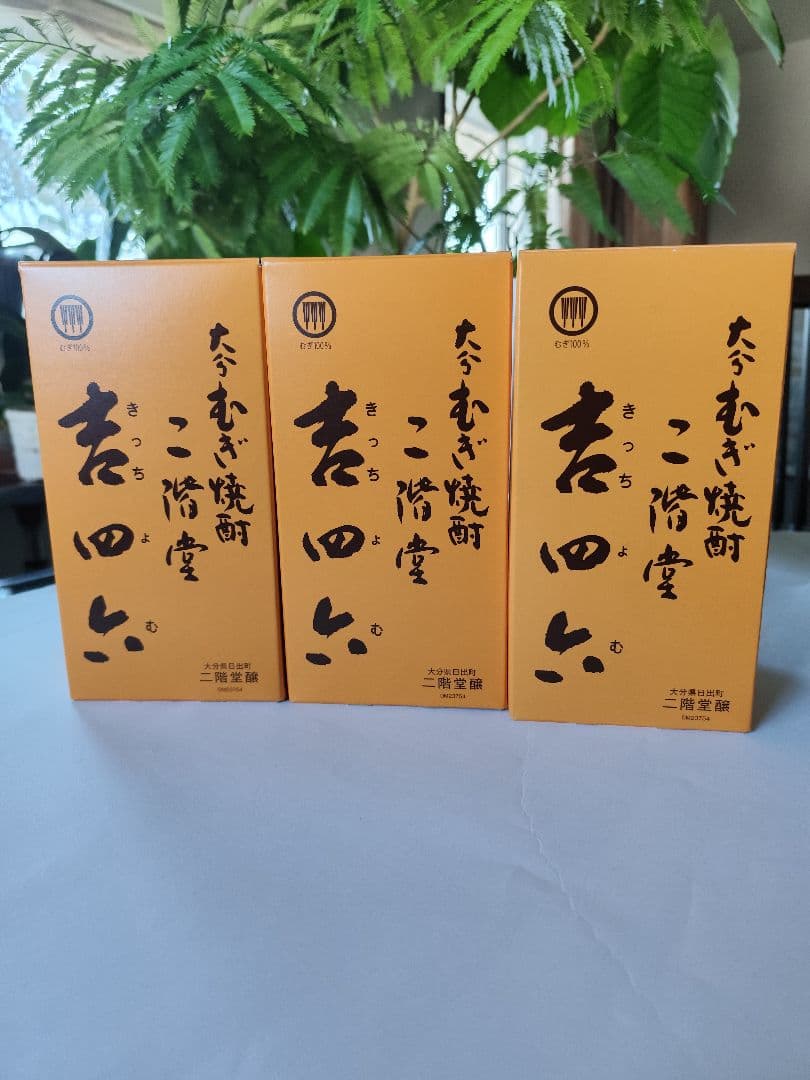 むぎ100%
大分むぎ焼酎
二階堂
吉四六
きっちよむ
大分県日出町
二階堂醸
むぎ100%
大分むぎ焼酎
二階堂
吉四六
きっちよむ
大分県日出町
二階堂醸
OM23754
むぎ100%
大分むぎ焼酎
二階堂
吉四六
きっちよむ
大分県日出町
二階堂醸
OM23754